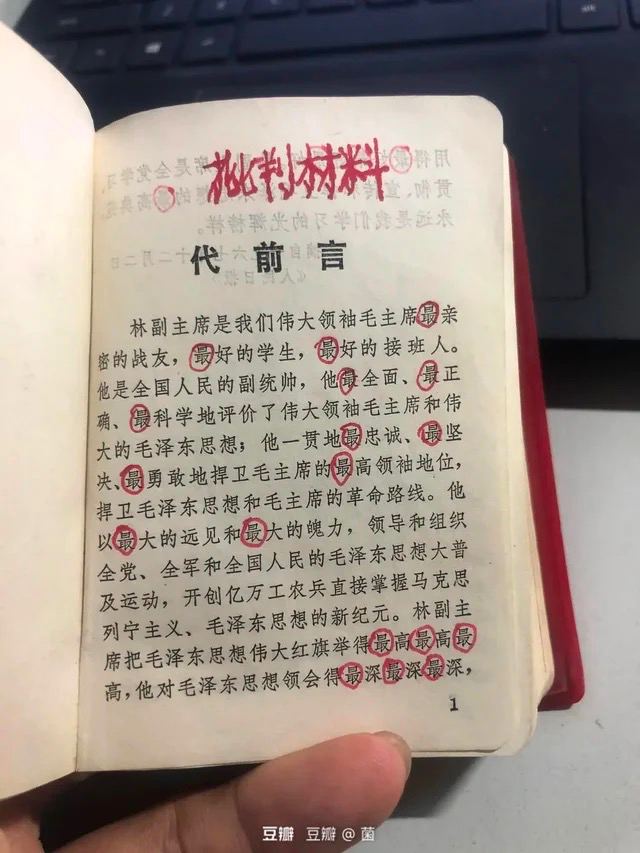 批判材料
代前言
林副主席是我们伟大领袖毛主席最亲
密的战友，最好的学生，最好的接班人。
他是全国人民的副统帅，他最全面、最正
确、最科学地评价了伟大领袖毛主席和伟
大的毛泽东思想；他一贯地最忠诚、最坚
决、最勇敢地捍卫毛主席的最高领袖地位，
捍卫毛泽东思想和毛主席的革命路线。他
以最大的远见和最大的魄力，领导和组织
全党、全军和全国人民的毛泽东思想大普
及运动，开创亿万工农兵直接掌握马克思
列宁主义、毛泽东思想的新纪元。林副主
席把毛泽东思想伟大红旗举得最高最高最
高，他对毛泽东思想领会得最深最深最深，
1
豆瓣 豆瓣@菌